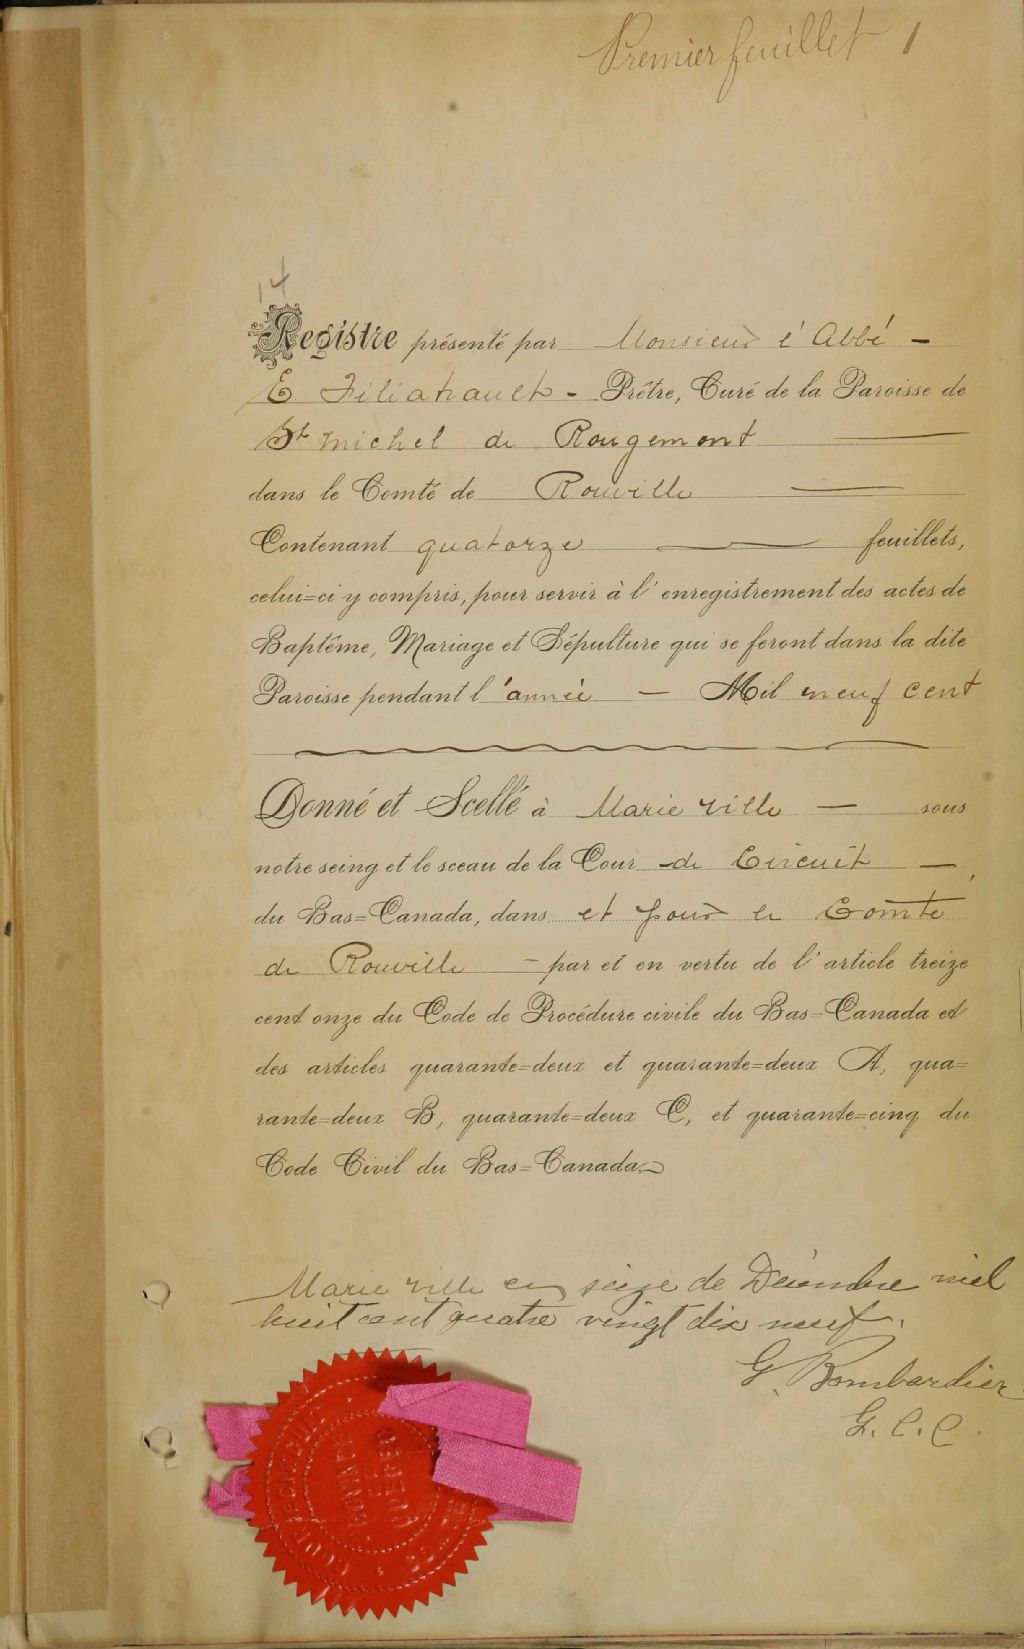 Premier feuillet 1
14
Registre présenté par Monsieur l'Abbé -
E. Filiatrault - Prêtre, Curé de la Paroisse de
St Michel de Rougemont
dans le Comté de Rouville
Contenant quatorze feuillets,
celui=ci y compris, pour servir à l'enregistrement des actes de
Baptême, Mariage et Sépulture qui se feront dans la dite
Paroisse pendant l'année - Mil neuf cent
Donné et Scellé à Marieville - sous
notre seing et le sceau de la Cour de Circuit -
du Bas=Canada, dans et pour le Comté
de Rouville - par et en vertu de l'article treize
cent onze du Code de Procédure civile du Bas=Canada et
des articles quarante=deux et quarante=deux A, qua=
rante=deux B, quarante=deux C, et quarante=cinq du
Code Civil du Bas=Canada.
Marieville seize de Décembre mil
huit cent quatre vingt dix neuf.
G. Bombardier
G. C. C.
QUEBEC